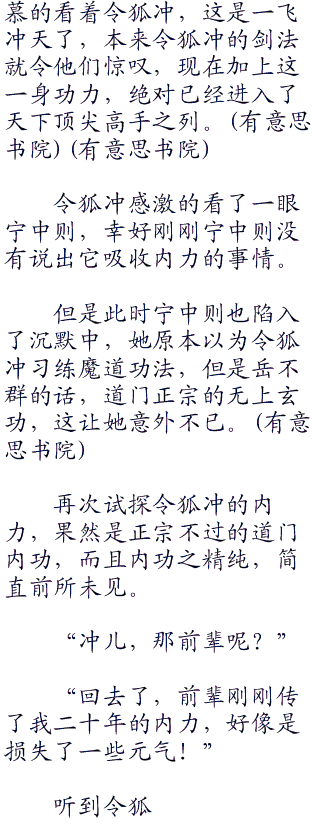 慕的看着令狐冲，这是一飞
冲天了，本来令狐冲的剑法
就令他们惊叹，现在加上这
一身功力，绝对已经进入了
天下顶尖高手之列。（有意思
书院）（有意思书院）
令狐冲感激的看了一眼
宁中则，幸好刚刚宁中则没
有说出它吸收内力的事情。
但是此时宁中则也陷入
了沉默中，她原本以为令狐
冲习练魔道功法，但是岳不
群的话，道门正宗的无上玄
功，这让她意外不已。（有意
思书院）
再次试探令狐冲的内
力，果然是正宗不过的道门
内功，而且内功之精纯，简
直前所未见。
“冲儿，那前辈呢？”
“回去了，前辈刚刚传
了我二十年的内力，好像是
损失了一些元气！”
听到令狐